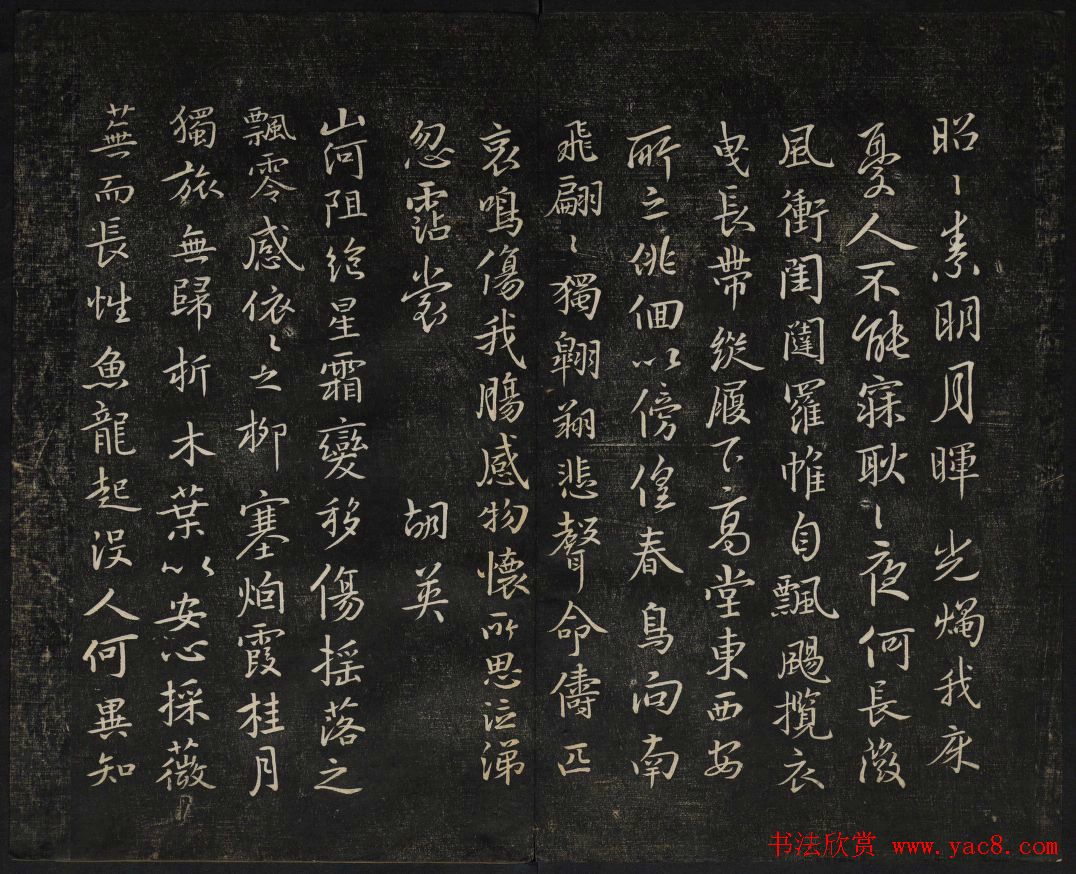 昭〻素明月暉光燭我床
憂人不能寐耿〻夜何長微
風衝閨闥羅帷自飄颺攬衣
曳長帶縱履下高堂東西安
所之徘徊以傍徨春鳥向南
飛翩〻獨翱翔悲聲命儔匹
哀鳴傷我腸感物懷所思泣涕
忽霑裳 胡英
山河阻絕星霜變移傷摇落之
飄零感依〻之柳塞烟霞桂月
獨旅無歸折木葉以安心採薇
蕪而長性魚龍起没人何異知
书法欣赏 www.yac8.com